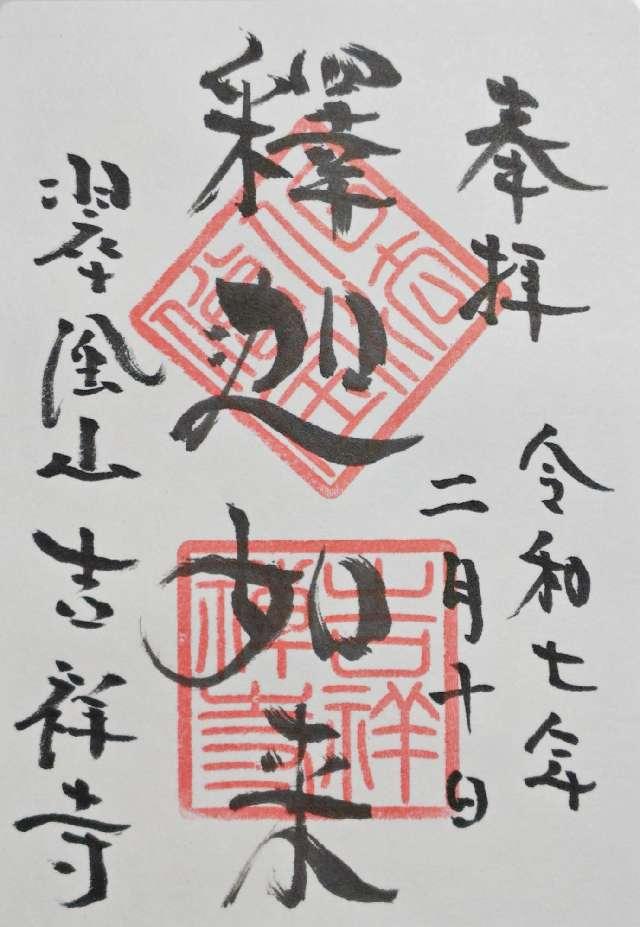 奉拝
令和七年
二月十日
釋迦如来
翠風山吉祥寺
吉祥禅寺